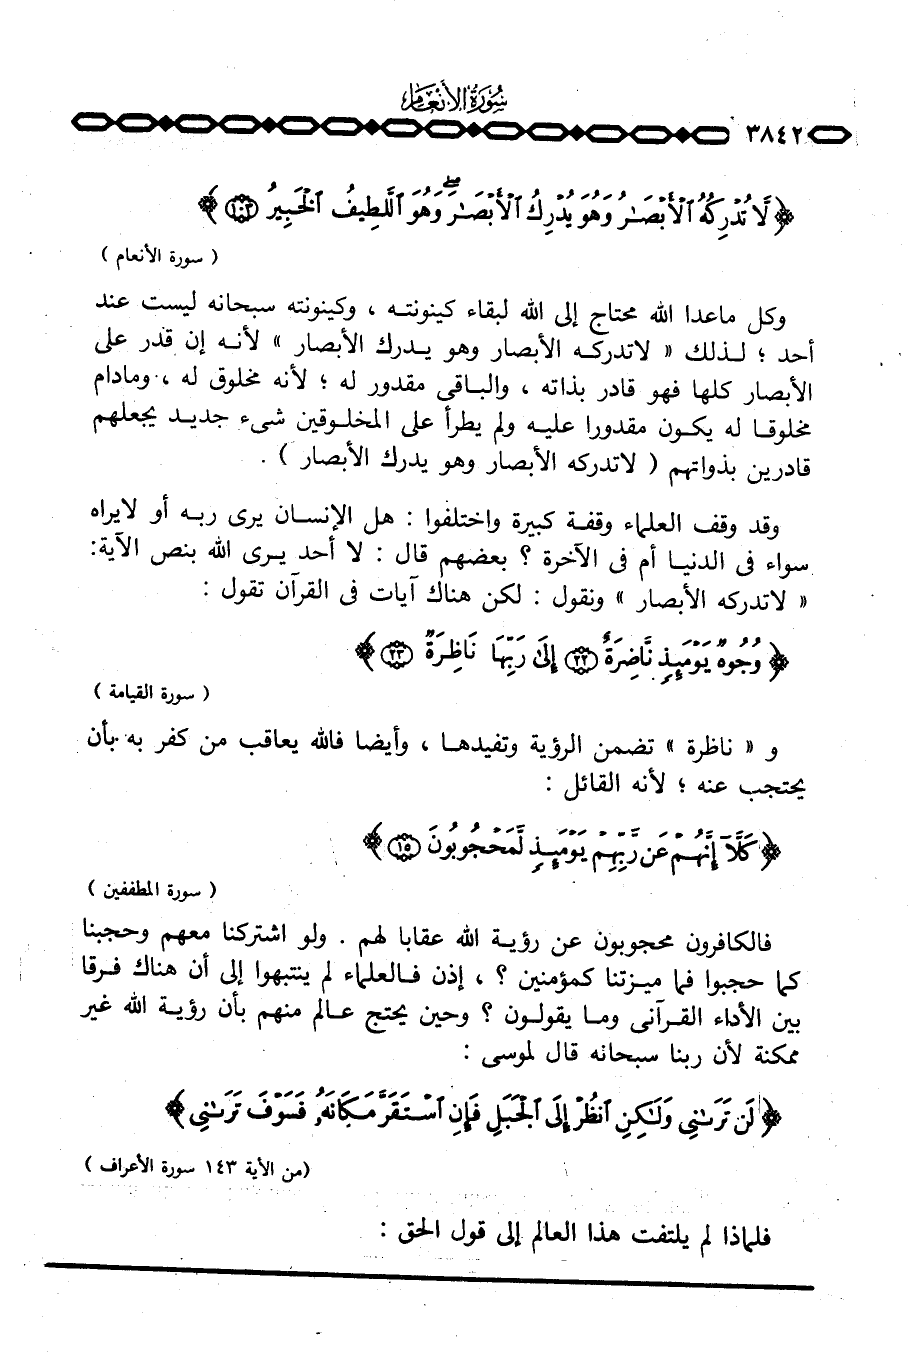 سورة الأنعام
٣٨٤٢
﴿ لَّا تُدْرِكُهُ ٱلْأَبْصَـٰرُ وَهُوَ يُدْرِكُ ٱلْأَبْصَـٰرَ ۖ وَهُوَ ٱللَّطِيفُ ٱلْخَبِيرُ ١٠٣ ﴾
( سورة الأنعام )
وكل ماعدا الله محتاج إلى الله لبقاء كينونته ، وكينونته سبحانه ليست عند
أحد ؛ لذلك « لاتدركه الأبصار وهو يدرك الأبصار » لأنه إن قدر على
الأبصار كلها فهو قادر بذاته ، والباقى مقدور له ؛ لأنه مخلوق له ، ومادام
مخلوقا له يكون مقدورا عليه ولم يطرأ على المخلوقين شىء جديد يجعلهم
قادرين بذواتهم ( لاتدركه الأبصار وهو يدرك الأبصار ) .
وقد وقف العلماء وقفة كبيرة واختلفوا : هل الإنسان يرى ربه أو لايراه
سواء فى الدنيا أم فى الآخرة ؟ بعضهم قال : لا أحد يرى الله بنص الآية:
« لاتدركه الأبصار » ونقول : لكن هناك آيات فى القرآن تقول :
﴿ وُجُوهٌ يَوْمَئِذٍ نَّاضِرَةٌ ٢٢ إِلَىٰ رَبِّهَا نَاظِرَةٌ ٢٣ ﴾
( سورة القيامة )
و « ناظرة » تضمن الرؤية وتفيدها ، وأيضا فالله يعاقب من كفر به بأن
يحتجب عنه ؛ لأنه القائل :
﴿ كَلَّآ إِنَّهُمْ عَن رَّبِّهِمْ يَوْمَئِذٍ لَّمَحْجُوبُونَ ١٥ ﴾
( سورة المطففين )
فالكافرون محجوبون عن رؤية الله عقابا لهم . ولو اشتركنا معهم وحجبنا
كما حجبوا فما ميزتنا كمؤمنين ؟ ، إذن فالعلماء لم ينتبهوا إلى أن هناك فرقا
بين الأداء القرآنى وما يقولون ؟ وحين يحتج عالم منهم بأن رؤية الله غير
ممكنة لأن ربنا سبحانه قال لموسى :
﴿ لَن تَرَىٰنِى وَلَـٰكِنِ ٱنظُرْ إِلَى ٱلْجَبَلِ فَإِنِ ٱسْتَقَرَّ مَكَانَهُۥ فَسَوْفَ تَرَىٰنِى ﴾
(من الأية ١٤٣ سورة الأعراف )
فلماذا لم يلتفت هذا العالم إلى قول الحق :